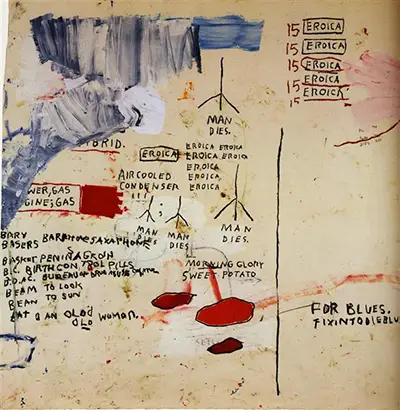 15 EROICA
15 EROICA
15 EROICA
15 EROICA
15 EROICA
MAN
DIES.
BRID.
EROICA
EROICA EROICA
EROICA EROICA
EROICA
EROICA
AIRCOOLED
CONDENSER
WER, GAS
GINE; GAS
MAN
DIES
MAN
DIES
MAN
DIES.
BABY
BASERS SAXAPHONE
BASKET PENIRAGKON
B.C. BIRTHCONTROL PILLS
B.D.A.C. BUREAU
BEAM TO LOOK
BEAN TO SUN
EAT D AN OLD WOMAN.
OLD
MORNING GLORY
SWEET POTATO
FOR BLUES.
FIXINTODIEBLU